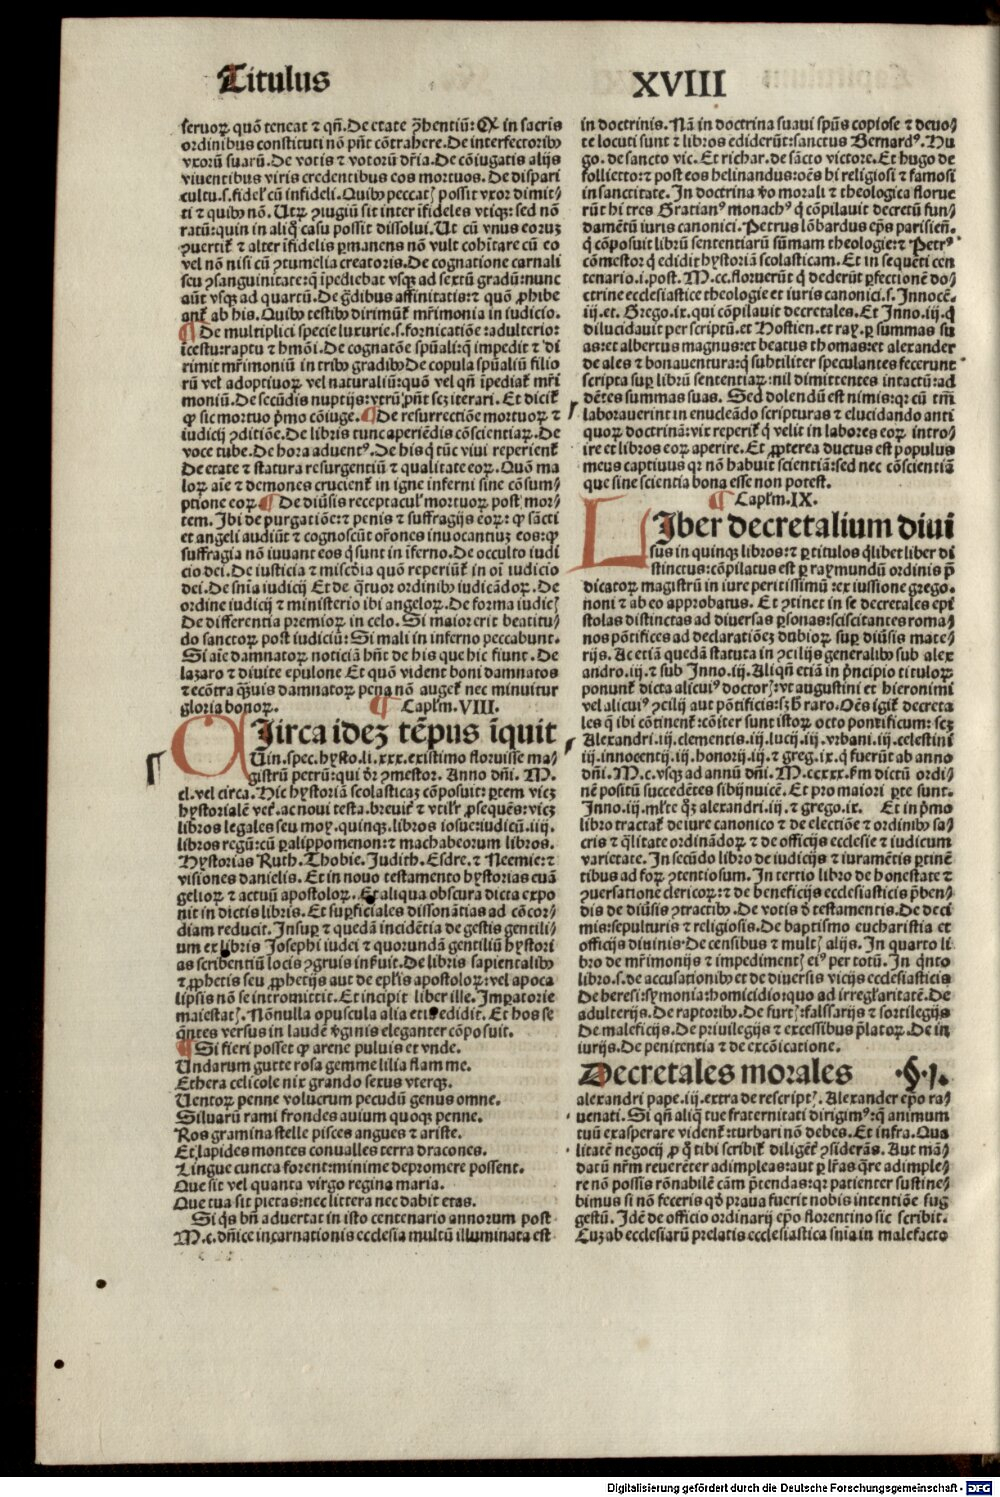 Titulus
XVIII
seruoꝝ quō teneat ⁊ qn̄. De etate ꝯhentiū: Qꝫ in sacris
ordinibus constituti nō pn̄t cōtrahere. De interfectoribꝰ
vxorū suarū. De votis ⁊ votorū dr̄ia. De cōiugatis alijs
viuentibus viris credentibus eos mortuos. De dispari
cultu .s. fidel' cū infideli. Quibꝰ peccat' possit vxor dimit⸗
ti ⁊ quibꝰ nō. Utꝝ ꝯiugiū sit inter īfideles vtiqꝫ: sed nō
ratū: quin in aliq̄ casu possit dissolui. Ut cū vnus eorūꝫ
ꝯuertit᷑ ⁊ alter īfidelis ꝑmanens nō vult cohītare cū eo
vel nō nisi cū ꝯtumelia creatoris. De cognatione carnali
seu ꝯsanguinitate: q̄ īpediebat vsqꝫ ad sextū gradū: nunc
aūt vsqꝫ ad quartū. De gͣdibus affinitatis: ⁊ quō ꝓhibe
ant᷑ ab his. Quibꝰ testibꝰ dirimūt᷑ mr̄imonia in iudicio.
¶ De multiplici specie luxurie .s. fornicatiōe: adulterio:
īcestu: raptu ⁊ hmōi. De cognatōe spūali: q̄ impedit ⁊ di
rimit mr̄imoniū in tribꝰ gradibꝰ De copula spūaliū filio
rū vel adoptiuoꝝ vel naturaliū: quō vel qn̄ īpediat᷑ mr̄i
moniū. De secūdis nuptijs: vtrū pn̄t scꝫ iterari. Et dicit᷑
ꝙ sic mortuo pͥmo cōiuge. ¶ De resurrectiōe mortuoꝝ ⁊
iudicij ꝯditiōe. De libris tunc aperiēdis cōscientiaꝝ. De
voce tube. De hora aduentꝰ. De his q̄ tūc viui reperient᷑
De etate ⁊ statura resurgentiū ⁊ qualitate eoꝝ. Quō ma
loꝝ aīe ⁊ demones crucient᷑ in igne inferni sine cōsum⸗
ptione eoꝝ ¶ De diūsis receptacul' mortuoꝝ post mor⸗
tem. Ibi de purgatiōe: ⁊ penis ⁊ suffragijs eoꝝ: ꝙ sācti
et angeli audiūt ⁊ cognoscūt or̄ones inuocantiuꝫ eos: ꝙ
suffragia nō iuuant eos q̄ sunt in īferno. De occulto iudi
cio dei. De iusticia ⁊ misc̄dia quō reperiūt᷑ in oī iudicio
dei. De sn̄ia iudicij Et de q̄tuor ordinibꝰ iudicādoꝝ. De
ordine iudicij ⁊ ministerio ibi angeloꝝ. De forma iudic'
De differentia premioꝝ in celo. Si maior erit beatitu⸗
do sanctoꝝ post iudiciū: Si mali in inferno peccabunt.
Si aīe damnatoꝝ noticiā hn̄t de his que hic fiunt. De
lazaro ⁊ diuite epulone Et quō vident boni damnatos
⁊ ecōtra q̄ꝫuis damnatoꝝ pena nō auget᷑ nec minuitur
gloria bonoꝝ. ¶ Capl'm. VIII.
Circa idez tēpus īquit
Uin. spec. hysto. li. xxx. existimo floruisse ma⸗
gistrū petrū: qui dr̄ ꝯmestor. Anno dn̄i. M.
cl. vel circa. Hic hystoriā scolasticaꝫ cōposuit: ꝑtem vicꝫ
hystorialē vet᷑. ac noui testa. breuit᷑ ⁊ vtilr̄ ꝓsequēs: vicꝫ
libros legales seu moy. quinqꝫ. libros iosue: iudicū. iiij.
libros regū: cū ꝑalippomenon: ⁊ machabeorum libros.
Hystorias Ruth. Thobie. Judith. Esdre. ⁊ Neemie: ⁊
visiones danielis. Et in nouo testamento hystorias euā
gelioꝝ ⁊ actuū apostoloꝝ. Et aliqua obscura dicta expo
nit in dictis libris. Et suꝑficiales dissonātias ad cōcor⸗
diam reducit. Insuꝑ ⁊ quedā incidētia de gestis gentili⸗
um ex libris Josephi iudei ⁊ quorundā gentiliū hystori
as scribentiū locis ꝯgruis inẜuit. De libris sapientalibꝰ
⁊ ꝓphetis seu ꝓphetijs aut de epl'is apostoloꝝ: vel apoca
lipsis nō se intromittit. Et incipit liber ille. Imꝑatorie
maiestat'. Nōnulla opuscula alia etiā edidit. Et hos se
q̄ntes versus in laudē vͥginis eleganter cōposuit.
¶ Si fieri posset ꝙ arene puluis et vnde.
Undarum gutte rosa gemme lilia flamme.
Ethera celicole nix grando sexus vterqꝫ.
Uentoꝝ penne volucrum pecudū genus omne.
Siluarū rami frondes auium quoqꝫ penne.
Ros gramina stelle pisces angues ⁊ ariste.
Et lapides montes conualles terra dracones.
Lingue cuncta forent: minime depromere possent.
Que sit vel quanta virgo regina maria.
Que tua sit pietas: nec littera nec dabit etas.
Si q̄s bn̄ aduertat in isto centenario annorum post
M. c. dn̄ice incarnationis ecclesia multū illuminata est
in doctrinis. Nā in doctrina suaui spūs copiose ⁊ deuo⸗
te locuti sunt ⁊ libros ediderūt: sanctus Bernardꝰ. Hu
go. de sancto vic. Et richar. de sācto victore. Et hugo de
folliecto: ⁊ post eos helinandus: oēs hi religiosi ⁊ famosi
in sanctitate. In doctrina v̄o morali ⁊ theologica florue
rūt hi tres Gratianꝰ monachꝰ q̄ cōpilauit decretū fun⸗
damētū iuris canonici. Petrus lōbardus ep̄s parisieñ.
q̄ cōposuit librū sententiarū sūmam theologie: ⁊ Petrꝰ
cōmestor q̄ edidit hystoriā scolasticam. Et in sequēti cen
tenario .i. post. M. cc. floruerūt q̄ dederūt ꝑfectionē do⸗
ctrine ecclesiastice theologie et iuris canonici .s. Innocē.
iij. et. Grego. ix. qui cōpilauit decretales. Et Inno. iij. q̄
dilucidauit per scriptū. et Hostien. et ray. ꝑ summas su
as: et albertus magnus: et beatus thomas: et alexander
de ales ⁊ bonauentura: q̄ subtiliter speculantes fecerunt
scripta suꝑ librū sententiaꝝ: nil dimittentes intactū: ad
dētes summas suas. Sed dolendū est nimis: qꝛ cū tm̄
laborauerint in enucleādo scripturas ⁊ elucidando anti
quoꝝ doctrinā: vix reperit᷑ q̄ velit in labores eoꝝ intro⸗
ire et libros eoꝝ aperire. Et ꝓpterea ductus est populus
meus captiuus qꝛ nō habuit scientiā: sed nec cōscientiā
que sine scientia bona esse non potest.
¶ Capl'm. IX.
LIber decretalium diui
sus in quinqꝫ libros: ⁊ ꝑ titulos q̄libet liber di
stinctus: cōpilatus est ꝑ raymundū ordinis p̄
dicatoꝝ magistrū in iure peritissimū: ex iussione grego.
noni ⁊ ab eo approbatus. Et ꝯtinet in se decretales epi
stolas distinctas ad diuersas ꝑsonas: sciscitantes roma⸗
nos pōtifices ad declaratiōeꝫ dubioꝝ suꝑ diūsis mate⸗
rijs. Ac etiā quedā statuta in ꝯcilijs generalibꝰ sub alex
andro. iij. ⁊ sub Inno. iij. Aliqn̄ etiā in pͥncipio tituloꝝ
ponunt᷑ dicta alicuiꝰ doctor': vt augustini et hieronimi
vel alicuiꝰ ꝯcilij aut pōtificis: sꝫ h̄ raro. Oēs igit᷑ decreta
les q̄ ibi cōtinent᷑: cōiter sunt istoꝝ octo pontificum: scꝫ
Alexandri. iij. clementis. iij. lucij. iij. vrbani. iij. celestini
iij. innocentij. iij. honorij. iij. ⁊ greg. ix. q̄ fuerūt ab anno
dn̄i. M. c. vsqꝫ ad annū dn̄i. M. ccxxx. ẜm dictū ordi⸗
nē positū succedētes sibijnuicē. Et pro maiori ꝑte sunt.
Inno. iij. ml'te q̄ꝫ alexandri. iij. ⁊ grego. ix. Et in pͥmo
libro tractat᷑ de iure canonico ⁊ de electiōe ⁊ ordinibꝰ sa⸗
cris ⁊ q̄litate ordinādoꝝ ⁊ de officijs ecclesie ⁊ iudicum
varietate. In secūdo libro de iudicijs ⁊ iuramētis ꝑtinē
tibus ad foꝝ ꝯtentiosum. In tertio libro de honestate ⁊
ꝯuersatione clericoꝝ: ⁊ de beneficijs ecclesiasticis p̄ben⸗
dis de diūsis ꝯtractibꝰ. De votis ⁊ testamentis. De deci
mis: sepulturis ⁊ religiosis. De baptismo eucharistia et
officijs diuinis· De censibus ⁊ mult' alijs. In quarto li
bro de mr̄imonijs ⁊ impediment' eiꝰ per totū. In q̄nto
libro .s. de accusationibꝰ et de diuersis vicijs ecclesiasticis
De heresi: symonia: homicidio: quo ad irregl'aritatē. De
adulterijs. De raptoribꝰ. De furt': falssarijs ⁊ sortilegijs
De maleficijs. De priuilegijs ⁊ excessibus p̄latoꝝ. De in
iurijs. De penitentia ⁊ de excōicatione.
Decretales morales ·§·j.
alexandri pape. iij. extra de rescript'. Alexander ep̄o ra⸗
uenati. Si qn̄ aliq̄ tue fraternitati dirigimꝰ: q̄ animum
tuū exasperare vident᷑: turbari nō debes. Et infra. Qua
litatē negocij ꝓ q̄ tibi scribit᷑ diligēt᷑ ꝯsiderās. Aut mā⸗
datū nr̄m reuerēter adimpleas: aut ꝑ lr̄as q̄re adimple⸗
re nō possis rōnabilē cām p̄tendas: qꝛ patienter sustine⸗
bimus si nō feceris qd̄ praua fuerit nobis intentiōe sug
gestū. Idē de officio ordinarij ep̄o florentino sic scribit.
Cuꝫ ab ecclesiarū prelatis ecclesiastica sn̄ia in malefacto
Digitalisierung gefördert durch die Deutsche Forschungsgemeinschaft - DFG